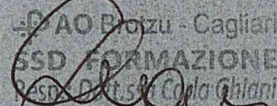 AO Brotzu - Cagliari
SSD FORMAZIONE
Resp. Dott.ssa Carla Ghiani